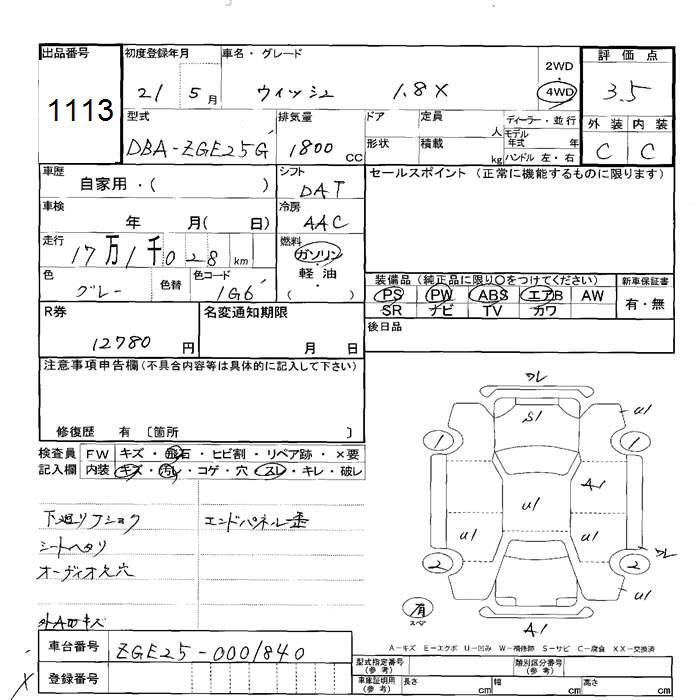 出品番号
1113
初度登録年月
21 5月
車名・グレード
ウィッシュ 1.8X
2WD
・
4WD
評価点
3.5
外装 内装
C C
型式
DBA-ZGE25G
排気量
1800 CC
ドア
形状
定員 人
積載 kg
ディーラー・並行
モデル年式 年
ハンドル 左・右
車歴
自家用・( )
シフト
DAT
セールスポイント (正常に機能するものに限ります)
車検
年 月( 日)
冷房
AAC
走行
17万1千028 km
燃料
ガソリン
・
軽油
( )
色
グレー
色替
色コード
1G6
装備品 (純正品に限り〇をつけてください)
PS PW ABS エアB AW
SR ナビ TV カワ
新車保証書
有・無
R券
12780 円
名変通知期限
月 日
後日品
注意事項申告欄(不具合内容等は具体的に記入して下さい)
修復歴 有 〔箇所 〕
検査員記入欄
FW キズ・飛石・ヒビ割・リペア跡・×要
内装 キズ・汚レ・コゲ・穴・スレ・キレ・破レ
下廻りフショク
エンドパネル歪
シートヘタリ
オーディオ欠穴
ワレ
S1
U1
1
1
A1
U1
U1
U1
ワレ
2
2
U1
A1
有
スペア
A-キズ E-エクボ U-凹み W-補修跡 S-サビ C-腐食 XX-交換済
車台番号
ZGE25-0001840
登録番号
型式指定番号(参考)
類別区分番号(参考)
車庫証明用(参考)
長さ cm
幅 cm
高さ cm